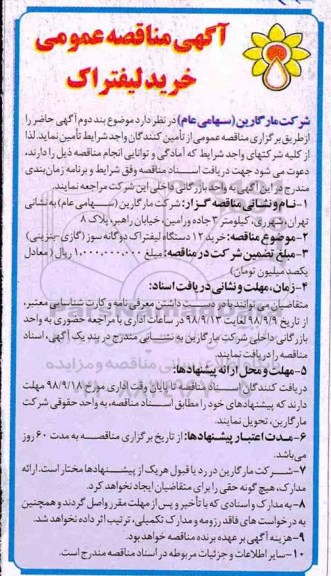 آگهی مناقصه عمومی
خرید لیفتراک
شرکت مارگارین (سهامی عام) در نظر دارد موضوع بند دوم آگهی حاضر را
از طریق برگزاری مناقصه عمومی از تأمین کنندگان واجد شرایط تأمین نماید. لذا
از کلیه شرکتهای واجد شرایط که آمادگی و توانایی انجام مناقصه ذیل را دارند،
دعوت می شود جهت دریافت اسناد مناقصه وفق شرایط و برنامه زمان‌بندی
مندرج در این آگهی به واحد بازرگانی داخلی این شرکت مراجعه نمایند.
۱- نام و نشانی مناقصه گزار: شرکت مارگارین (سهامی عام) به نشانی
تهران، شهرری، کیلومتر ۳ جاده ورامین، خیابان راهبر، پلاک ۸
۲- موضوع مناقصه: خرید ۱۲ دستگاه لیفتراک دوگانه سوز (گازی-بنزینی)
۳- مبلغ تضمین شرکت در مناقصه: مبلغ ۱,۰۰۰,۰۰۰,۰۰۰ ریال (معادل
یکصد میلیون تومان)
۴- زمان، مهلت و نشانی دریافت اسناد:
متقاضیان می‌توانند با در دست داشتن معرفی نامه و کارت شناسایی معتبر،
از تاریخ ۹۸/۹/۹ لغایت ۹۸/۹/۱۳ در ساعات اداری با مراجعه حضوری به واحد
بازرگانی داخلی شرکت مارگارین به نشانی مندرج در بند یک آگهی، اسناد
مناقصه را دریافت نمایند
۵- مهلت و محل ارائه پیشنهادها:
دریافت کنندگان اسناد مناقصه تا پایان وقت اداری مورخ ۹۸/۹/۱۸ مهلت
دارند که پیشنهادهای خود را مطابق اسناد مناقصه، به واحد حقوقی شرکت
مارگارین، تحویل نمایند.
۶- مدت اعتبار پیشنهادها: از تاریخ برگزاری مناقصه به مدت ۶۰ روز
می‌باشد.
۷- شرکت مارگارین در رد یا قبول هر یک از پیشنهادها مختار است. ارائه
مدارک، هیچ گونه حقی را برای متقاضیان ایجاد نخواهد کرد.
۸- به مدارک و اسنادی که با تأخیر و پس از مهلت مقرر واصل گردند و همچنین
به درخواست های فاقد رزومه و مدارک تکمیلی، ترتیب اثر داده نخواهد شد.
۹- هزینه آگهی بر عهده برنده مناقصه خواهد بود.
۱۰- سایر اطلاعات و جزئیات مربوطه در اسناد مناقصه مندرج است.